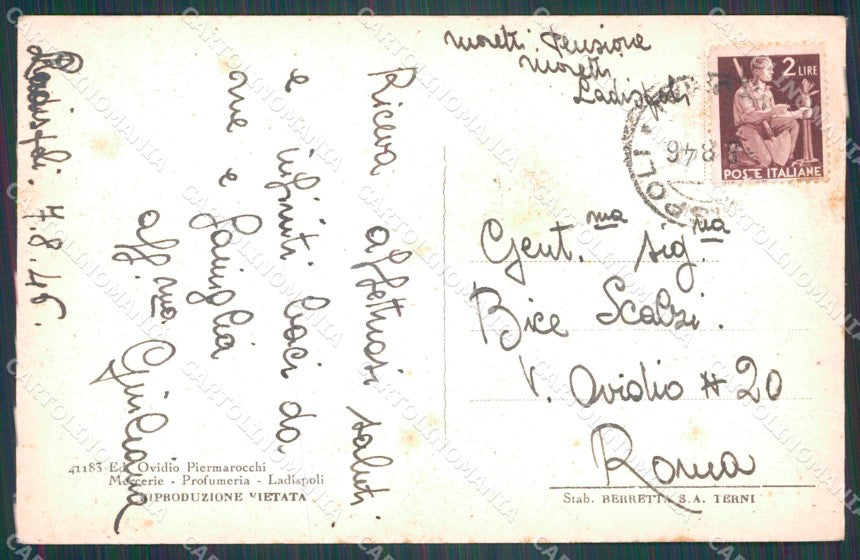 Ladispoli. 7.8.46.
Riceva affettuosi saluti
e infiniti baci da
me e famiglia
aff.ma Giuliana
41183 Ed. Ovidio Piermarocchi
Mercerie - Profumeria - Ladispoli
RIPRODUZIONE VIETATA
Moretti Pensione
Moretti
Ladispoli
2 LIRE
POSTE ITALIANE
8 46
SPOLI
Gent.ma sig.na
Bice Scalzi.
V. Ovidio # 20
Roma
Stab. BERRETTA S.A. TERNI
CARTOLINOMANIA